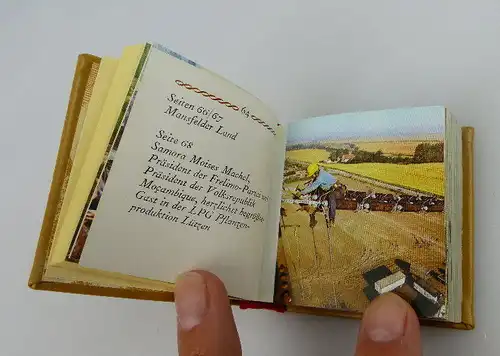 64
Seiten 66/67
Mansfelder Land
Seite 68
Samora Moises Machel,
Präsident der Frelimo-Partei und
Präsident der Volksrepublik
Moçambique, herzlichst begrüßter
Gast in der LPG Pflanzen-
produktion Lützen